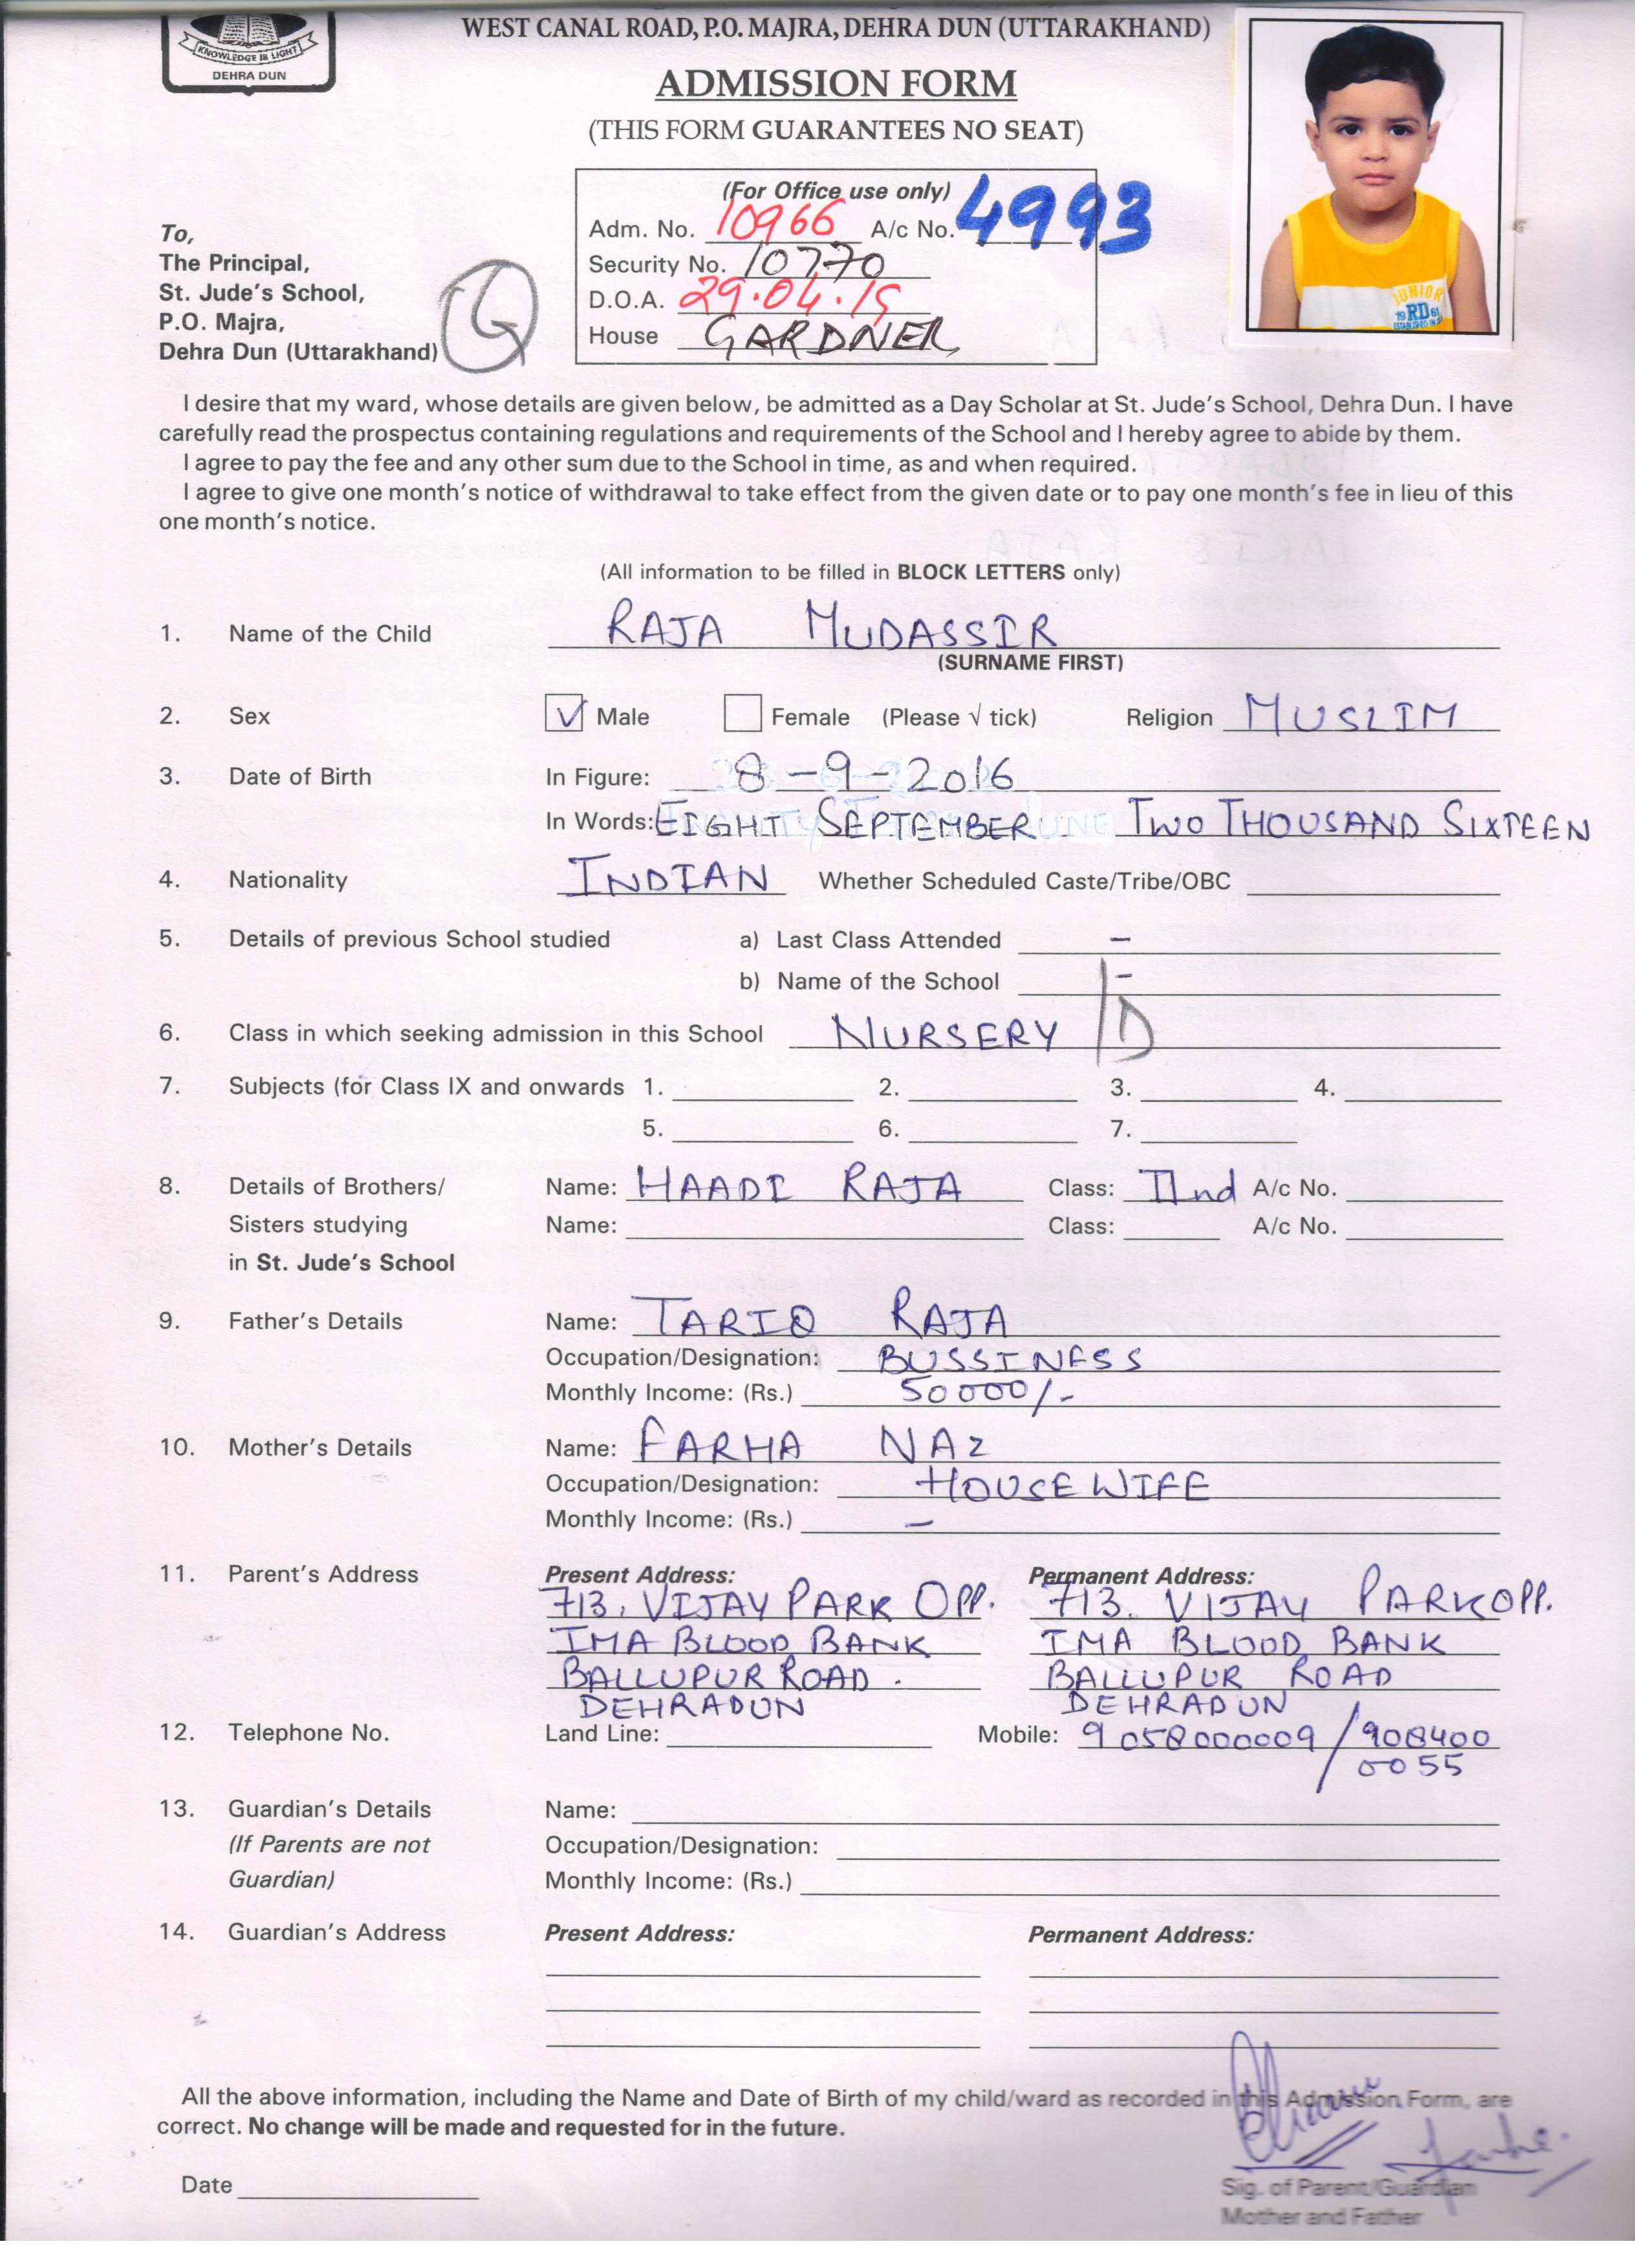 KNOWLEDGE IS LIGHT
DEHRA DUN
WEST CANAL ROAD, P.O. MAJRA, DEHRA DUN (UTTARAKHAND)
ADMISSION FORM
(THIS FORM GUARANTEES NO SEAT)
(For Office use only)
Adm. No. 10966 A/c No. 4993
Security No. 10770
D.O.A. 29.04.19
House GARDNER
To,
The Principal,
St. Jude's School,
P.O. Majra,
Dehra Dun (Uttarakhand)
G
JUNIOR
19 RD 61
ESTABLISHED IN
I desire that my ward, whose details are given below, be admitted as a Day Scholar at St. Jude's School, Dehra Dun. I have
carefully read the prospectus containing regulations and requirements of the School and I hereby agree to abide by them.
I agree to pay the fee and any other sum due to the School in time, as and when required.
I agree to give one month's notice of withdrawal to take effect from the given date or to pay one month's fee in lieu of this
one month's notice.
(All information to be filled in BLOCK LETTERS only)
1. Name of the Child RAJA MUDASSIR
(SURNAME FIRST)
2. Sex √ Male Female (Please √ tick) Religion MUSLIM
3. Date of Birth In Figure: 8-9-2016
In Words: EIGHT SEPTEMBER TWO THOUSAND SIXTEEN
4. Nationality INDIAN Whether Scheduled Caste/Tribe/OBC
5. Details of previous School studied a) Last Class Attended -
b) Name of the School -
6. Class in which seeking admission in this School NURSERY /D
7. Subjects (for Class IX and onwards 1. 2. 3. 4.
5. 6. 7.
8. Details of Brothers/ Name: HAADI RAJA Class: IInd A/c No.
Sisters studying Name: Class: A/c No.
in St. Jude's School
9. Father's Details Name: TARIQ RAJA
Occupation/Designation: BUSSINESS
Monthly Income: (Rs.) 50000/-
10. Mother's Details Name: FARHA NAZ
Occupation/Designation: HOUSE WIFE
Monthly Income: (Rs.) -
11. Parent's Address Present Address: Permanent Address:
713, VIJAY PARK OPP. 713. VIJAY PARK OPP.
IMA BLOOD BANK IMA BLOOD BANK
BALLUPUR ROAD. BALLUPUR ROAD
DEHRADUN DEHRADUN
12. Telephone No. Land Line: Mobile: 9058000009 / 908400
0055
13. Guardian's Details Name:
(If Parents are not Occupation/Designation:
Guardian) Monthly Income: (Rs.)
14. Guardian's Address Present Address: Permanent Address:
All the above information, including the Name and Date of Birth of my child/ward as recorded in this Admission Form, are
correct. No change will be made and requested for in the future.
Date
Sig. of Parent/Guardian
Mother and Father